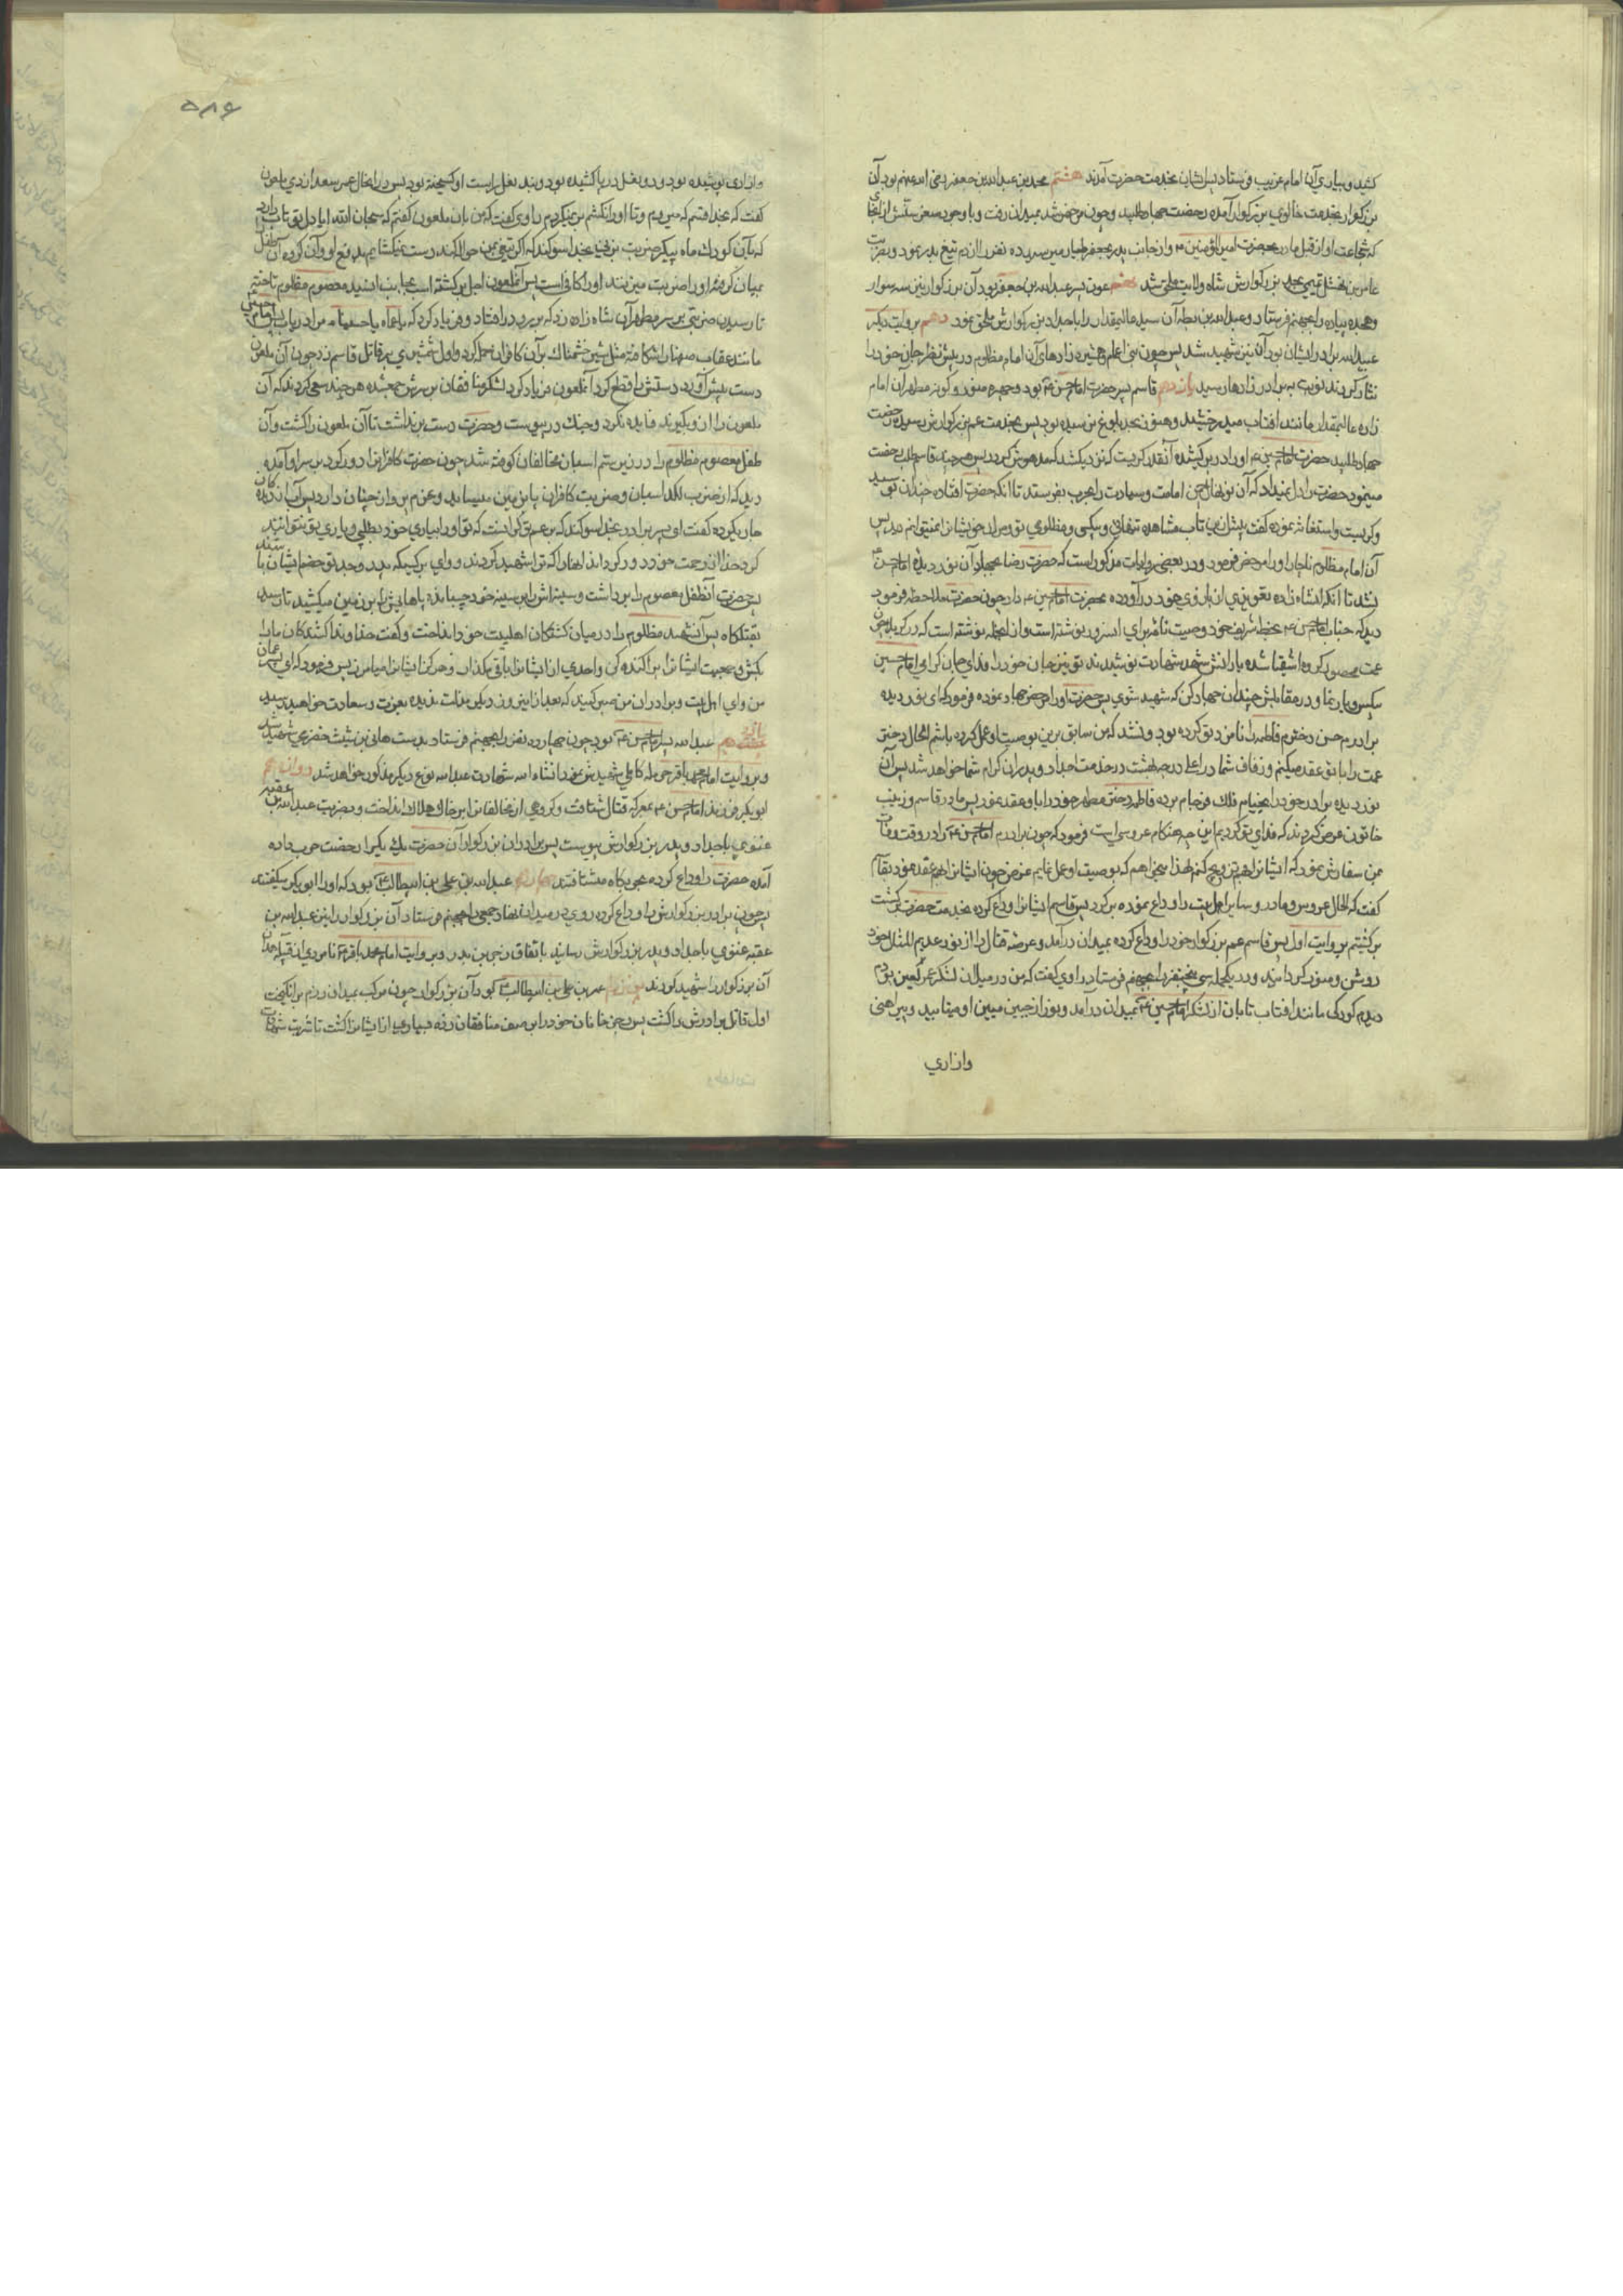 کشید و بیاری آن امام غریب فرستاد پس ایشان بخدمت حضرت آمدند هشتم محمد بن عبدالله بن جعفر رضی الله عنهم بود آن
بزرکوار بخدمت خالوی بزرکوار آمده رخصت جهاد طلبید و چون مرخص شد بمیدان رفت و با وجود صغر سنش از آنجا
که شجاعت او از قبل مادر بحضرت امیرالمؤمنین و از جانب پدر بجعفر طیار میرسید ده نفر را از دم تیغ بدر نمود و بضربت
عامر بن نهشل تمیمی بجد بزرکوارش شاه ولایت ملحق شد نهم عون پسر عبدالله بن جعفر بود آن بزرکوار نیز سه سوار
وهجده پیاده را بجهنم فرستاد و عبدالله بن بطه آن سید عالیمقدار را با جداد بزرکوارش ملحق نمود دهم بروایت دیکر
عبیدالله برادر ایشان بود آن نیز شهید شد پس چون بنی اعمام و همشیره زادهای آن امام مظلوم در پیش نظر جان خود را
نثار کردند نوبت به برادرزادها رسید یازدهم قاسم پسر حضرت امام حسن بود و چهره منور و کونه مطهر آن امام
زاده عالیمقدار مانند آفتاب میدرخشید و هنوز بحد بلوغ نرسیده بود پس بخدمت عم بزرکوارش رسیده رخصت
جهاد طلبید حضرت امام حسین او را در بر کشیده آنقدر کریست که نزدیک شد که مدهوش کردد پس هر چند قاسم طلب رخصت
مینمود حضرت را دل نمیداد که آن نونهال چمن امامت و سیادت را بحرب بفرستد تا آنکه حضرت افتاده چندان بوسید
و کریست و استغاثه نموده کفت پیش از این تاب مشاهده تنهائی و بیکسی و مظلومی تو و مردن خویشانرا نمیتوانم دید پس
آن امام مظلوم ناچار او را مرخص فرمود و در بعضی روایات مذکور است که حضرت رضا بجهاد آن نور دیده امام حسن
نشد تا آنکه آنشاهزاده تعویذی از بازوی خود در آورده بحضرت امام حسین داد چون حضرت ملاحظه فرمود
دید که جناب امام حسن بخط شریف خود وصیت نامه برای آن سرور نوشته است و از آنجمله نوشته است که در کربلا چون
عمت محصور کروه اشقیا شده یارانش شهد شهادت نوشیدند تو نیز جان خود را فدای جان کرامی امام حسین
بیکس و یار نما و در مقابلش چندان جهاد کن که شهید شوی پس حضرت او را مرخص جهاد نموده فرمود که ای نور دیده
برادرم حسن دخترم فاطمه را نامزد تو کرده بود و نشد که من سابق برین بوصیت او عمل کرده باشم الحال دختر
عمت را با تو عقد میکنم و زفاف شما در اعلی درجه بهشت در خدمت اجداد و پدران کرام شما خواهد شد پس آن
نور دیده برادر خود را بخیام فلک فرجام برده فاطمه دختر مطهر خود را با و عقد نمود پس مادر قاسم و زینب
خاتون عرض کردند که فدای تو کردیم این چه هنکام عروسی است فرمود که چون برادرم امام حسن مرا در وقت وفات
بمن سفارش نمود که ایشانرا بهم تزویج کنم لهذا میخواهم که بوصیت او عمل نمایم غرض چون ایشانرا بهم عقد نمود بقاسم
کفت که الحال عروس و مادر و سایر اهل بیت را وداع نموده بر کرد پس قاسم ایشانرا وداع کرده بخدمت حضرت برکشت
برکشتیم بروایت اول پس قاسم عم بزرکوار خود را وداع کرده بمیدان درآمد و عرصه قتال را از نور عدیم المثال خود
روشن و منور کردانید و در یکحمله سی و پنج نفر را بجهنم فرستاد راوی کفت که من در میان لشکر عمر لعین بودم
دیدم کودکی مانند آفتاب تابان از لشکر امام حسین بمیدان درآمد و نور از جبین مبین او میتابید و پیراهنی
وازاری
۵۸۶
وازاری پوشیده بود و دو نعل در پا کشیده بود و بند نعل راست او کسیخته بود پس در اینحال عمر سعد ازدی ملعون
کفت که بخدا قسم که میروم و تا او را نکشم بر نمیکردم راوی کفت که من بان ملعون کفتم که سبحان الله آیا دل تو تاب دارد
که بآن کودک ماه پیکر ضربت بزنی بخدا سوکند که اکر تیغی بمن حواله کند دست نمیکشایم بدفع او و آن کروه آن طفل
بمیان کرفته او را ضربت میزنند او را کافیست پس آنملعون اجل بر کشته اسب بجانب آن سید معصوم مظلوم تاخته
تا رسیدن ضربتی بر سر مطهر آن شاهزاده زد که بر رو در افتاد و فریاد کرد که یا عماه یا حسیناه مرا دریاب پس امام حسین
مانند عقاب صفها را شکافته مثل شیر خشمناک بر آن کافران حمله کرد و اول شمشیری بر قاتل قاسم زد چون آن ملعون
دست پیش آورد دستش را قطع کرد آنملعون فریاد کرد لشکر منافقان بر سرش جمع شده هر چند سعی کردند که آن
ملعون را از او بکیرند فایده نکرد و جنک در پیوست و حضرت دست برنداشت تا آن ملعون را کشت و آن
طفل معصوم مظلوم را در زیر سم اسبان مخالفان کوفته شد چون حضرت کافرانرا دور کرد بر سر او آمده
دید که از ضرب لکد اسبان و ضربت کافران پا بر زمین میساید و عزم پرواز جنان دارد پس آب از دیده کان
جاری کرده کفت ای پسر برادر بخدا سوکند که بر عم تو کرانست که تو او را بیاری خود بطلبی و یاری تو نتواند
کرد خدا از رحمت خود دور کرداند آنها را که ترا شهید کردند و وای بر کسیکه پدر و جد تو خصم ایشان باشند
پس حضرت آنطفل معصوم را برداشت و سینه اش را بر سینه خود چسبانده پاهایش را بر زمین میکشید تا رسید
بقتلکاه پس آن شهید مظلوم را در میان کشتکان اهلبیت خود انداخت و کفت خداوندا کشندکان ما را
بکش و جمعیت ایشانرا پراکنده کن و احدی از ایشانرا باقی مکذار و هرکز ایشانرا میامرز پس فرمود که ای پسر عمان
من و ای اهل بیت و برادران من صبر کنید که بعد از این روز دیکر مذلت ندیده بعزت و سعادت خواهید رسید
عبدالله پسر امام حسن بود چون چهارده نفر را بجهنم فرستاد بدست هانی بن ثبیت حضرمی شهید شد
و بروایت امام محمد باقر حرمله کاهلی شهیدش نمود انشاء الله شهادت عبدالله بنوع دیکر مذکور خواهد شد دوازدهم
ابوبکر فرزند امام حسن بمعرکه قتال شتافت و کروهی از مخالفانرا بر خاک هلاک انداخت و بضربت عبدالله بن عقبه
غنوی باجداد و پدر بزرکوارش پیوست پس برادران بزرکوار آن حضرت یک یک برای رخصت حرب داده
آمده حضرت را وداع کرده بحربکاه میشتافتند عبدالله بن علی بن ابیطالب بود که او را ابوبکر میکفتند
پس چون برادر بزرکوارش را وداع کرده روی در میدان نهاد جمعی را بجهنم فرستاد آن بزرکوار را نیز عبدالله بن
عقبه غنوی باجداد و پدر بزرکوارش رسانید باتفاق زحر بن بدر و بروایت امام محمد باقر نامردی از قبیله همدان
آن بزرکوار را شهید کردند عمر بن علی بن ابیطالب بود آن بزرکوار چون مرکب بمیدان رزم برانکیخت
اول قاتل برادرش را کشت پس رجز خوانان خود را بر صف منافقان زده بسیاری از ایشانرا کشت تا شربت شهادت